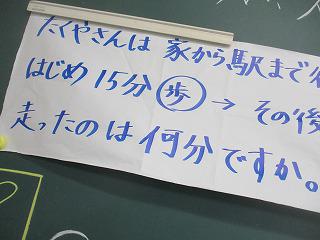 たくやさんは 家から駅まで
はじめ 15分 歩 → その後
走ったのは 何分ですか。